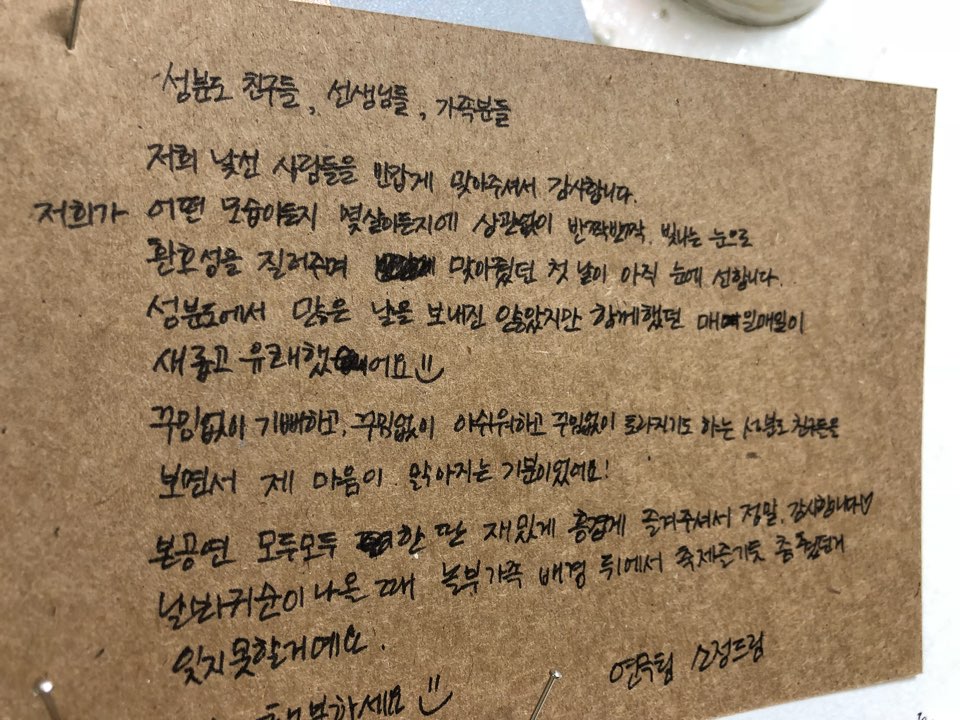 성분도 친구들, 선생님들, 가족분들
저희 낯선 사람들을 반갑게 맞아주셔서 감사합니다.
저희가 어떤 모습이든지 몇살이든지에 상관없이 반짝반짝, 빛나는 눈으로
환호성을 질러주며 맞아줬던 첫 날이 아직 눈에 선합니다.
성분도에서 많은 날을 보내진 않았지만 함께했던 매일매일이
새롭고 유쾌했어요
꾸밈없이 기뻐하고, 꾸밈없이 아쉬워하고 꾸밈없이 토라지기도 하는 성분도 친구들을
보면서 제 마음이 맑아지는 기분이었어요!
본공연 모두모두 한 맘 재밌게 흥겹게 즐겨주셔서 정말, 감사합니다♡
날나라귀순이 나올 때 놀부가족 배경 뒤에서 축제즐기듯 춤췄던거
잊지못할거예요.
행복하세요
연극팀 소정드림